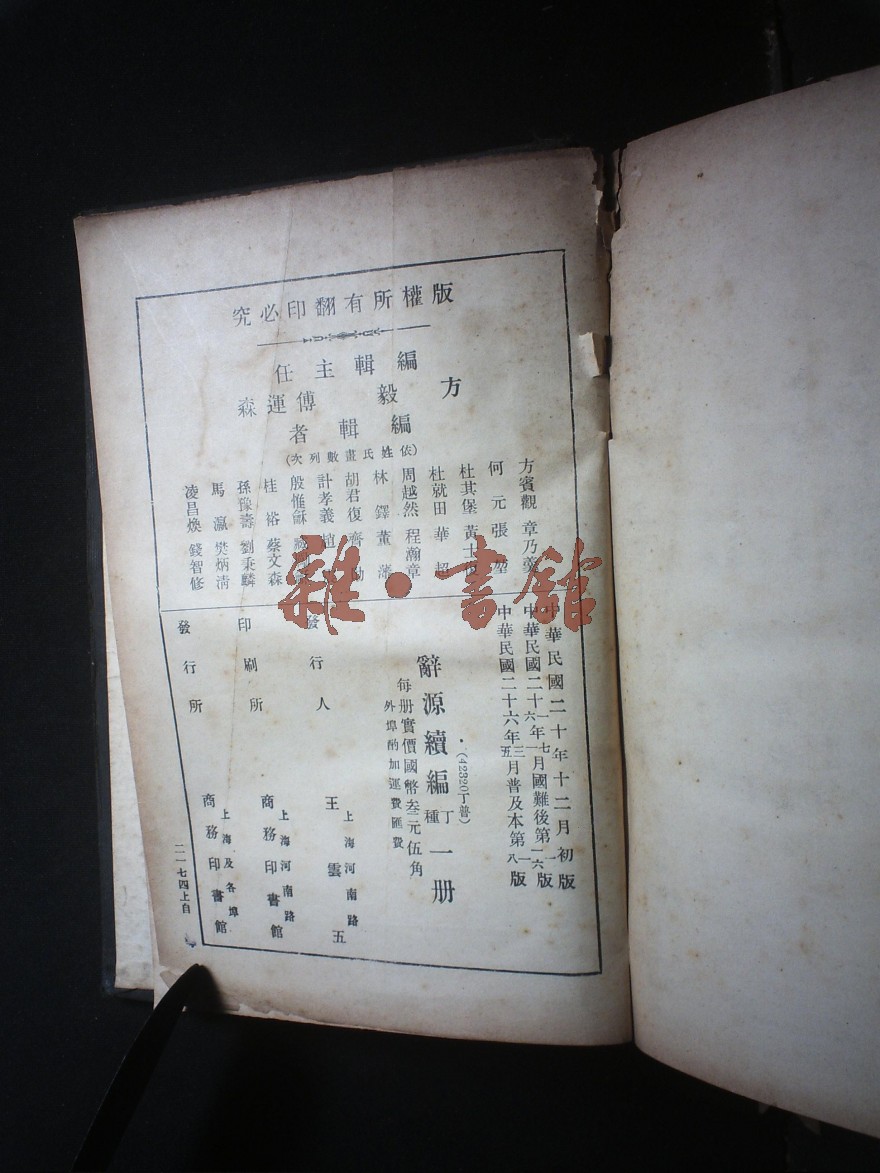 版權所有翻印必究
編輯主任
方毅 傅運森
編輯者
(依姓氏畫數列次)
方賓觀 章乃
何元 張堃
杜其堡 黃士
杜就田 華超
周越然 程瀚章
林鐸 董滌
胡君復 齊
計孝義 趙
殷惟龢 臧
桂裕 蔡文森
孫豫壽 劉秉麟
馬瀛 樊炳清
凌昌煥 錢智修
中華民國二十年十二月初版
中華民國二十一年七月國難後第一版
六 一 一六
中華民國二十六年三月普及本第一版
五 八
(42320丁普)
辭源續編丁種一册
每册實價國幣叁元伍角
外埠酌加運費匯費
發行人 王雲五
上海河南路
印刷所 商務印書館
上海河南路
發行所 商務印書館
上海及各埠
二一七四上自
雜·書館